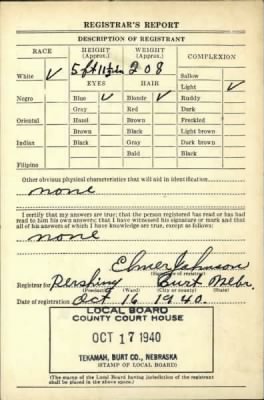 REGISTRAR'S REPORT
DESCRIPTION OF REGISTRANT
RACE HEIGHT (Approx.) WEIGHT (Approx.) COMPLEXION
5 ft 11½ in 208 Sallow
White ✓ EYES HAIR Light ✓
Negro Blue ✓ Blonde ✓ Ruddy
Gray Red Dark
Oriental Hazel Brown Freckled
Brown Black Light brown
Indian Black Gray Dark brown
Bald Black
Filipino
Other obvious physical characteristics that will aid in identification
none
I certify that my answers are true; that the person registered has read or has had
read to him his own answers; that I have witnessed his signature or mark and that
all of his answers of which I have knowledge are true, except as follows:
none
Elmer Johnson
(Signature of registrar)
Registrar for Pershing Burt Nebr.
(Precinct) (Ward) (City or county) (State)
Date of registration Oct 16 1940
LOCAL BOARD
COUNTY COURT HOUSE
OCT 17 1940
TEKAMAH, BURT CO., NEBRASKA
(STAMP OF LOCAL BOARD)
(The stamp of the Local Board having jurisdiction of the registrant
shall be placed in the above space.)